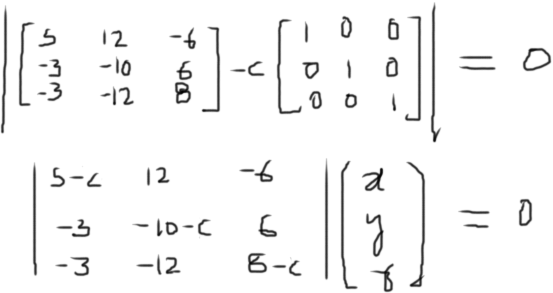 | [ 5 12 -6
-3 -10 6
-3 -12 8 ] - c [ 1 0 0
0 1 0
0 0 1 ] | = 0
| 5-c 12 -6
-3 -10-c 6
-3 -12 8-c | [ x
y
z ] = 0